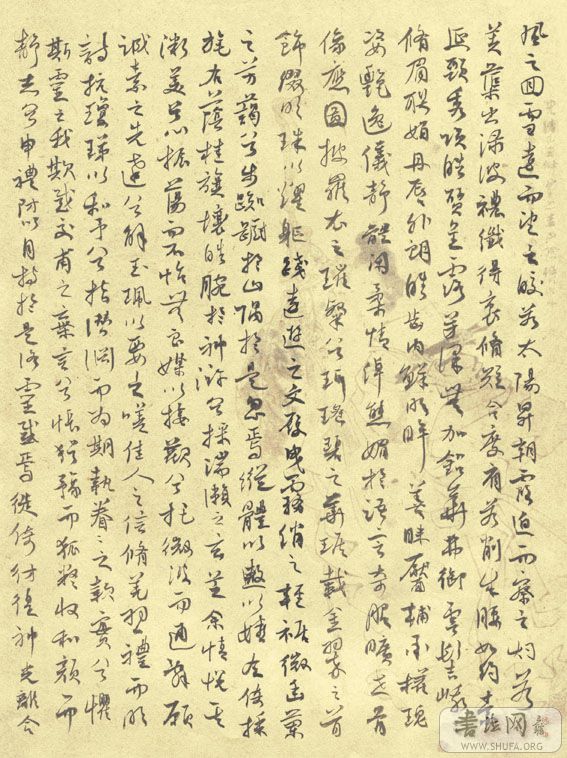 風之回雪遠而望之皎若太陽昇朝霞迫而察之灼若
芙蕖出渌波襛纖得衷脩短合度肩若削成腰如約素
延頸秀項皓質呈露芳澤無加鉛華弗御雲髻峩
脩眉聯娟丹唇外朗皓齒內鮮明眸善睞靨輔承權瑰
姿艷逸儀靜體閑柔情綽態媚於語言奇服曠世骨
像應圖披羅衣之璀粲兮珥瑶碧之華琚戴金翠之首
飾綴明珠以耀軀踐遠遊之文履曳霧綃之輕裾微幽蘭
之芳藹兮步踟躕於山隅於是忽焉縱體以遨以嬉左倚採
旄右蔭桂旗攘皓腕於神滸兮採湍瀨之玄芝余情悅其
淑美兮心振蕩而不怡無良媒以接歡兮托微波而通辭願
誠素之先達兮解玉珮以要之嗟佳人之信脩羌習禮而明
詩抗瓊珶以和予兮指潛淵而為期執眷之款實兮懼
斯靈之我欺感交甫之棄言兮悵猶豫而狐疑收和顏而
靜志兮申禮防以自持於是洛靈感焉徙倚彷徨神光離合
書法网
WWW.SHUFA.ORG